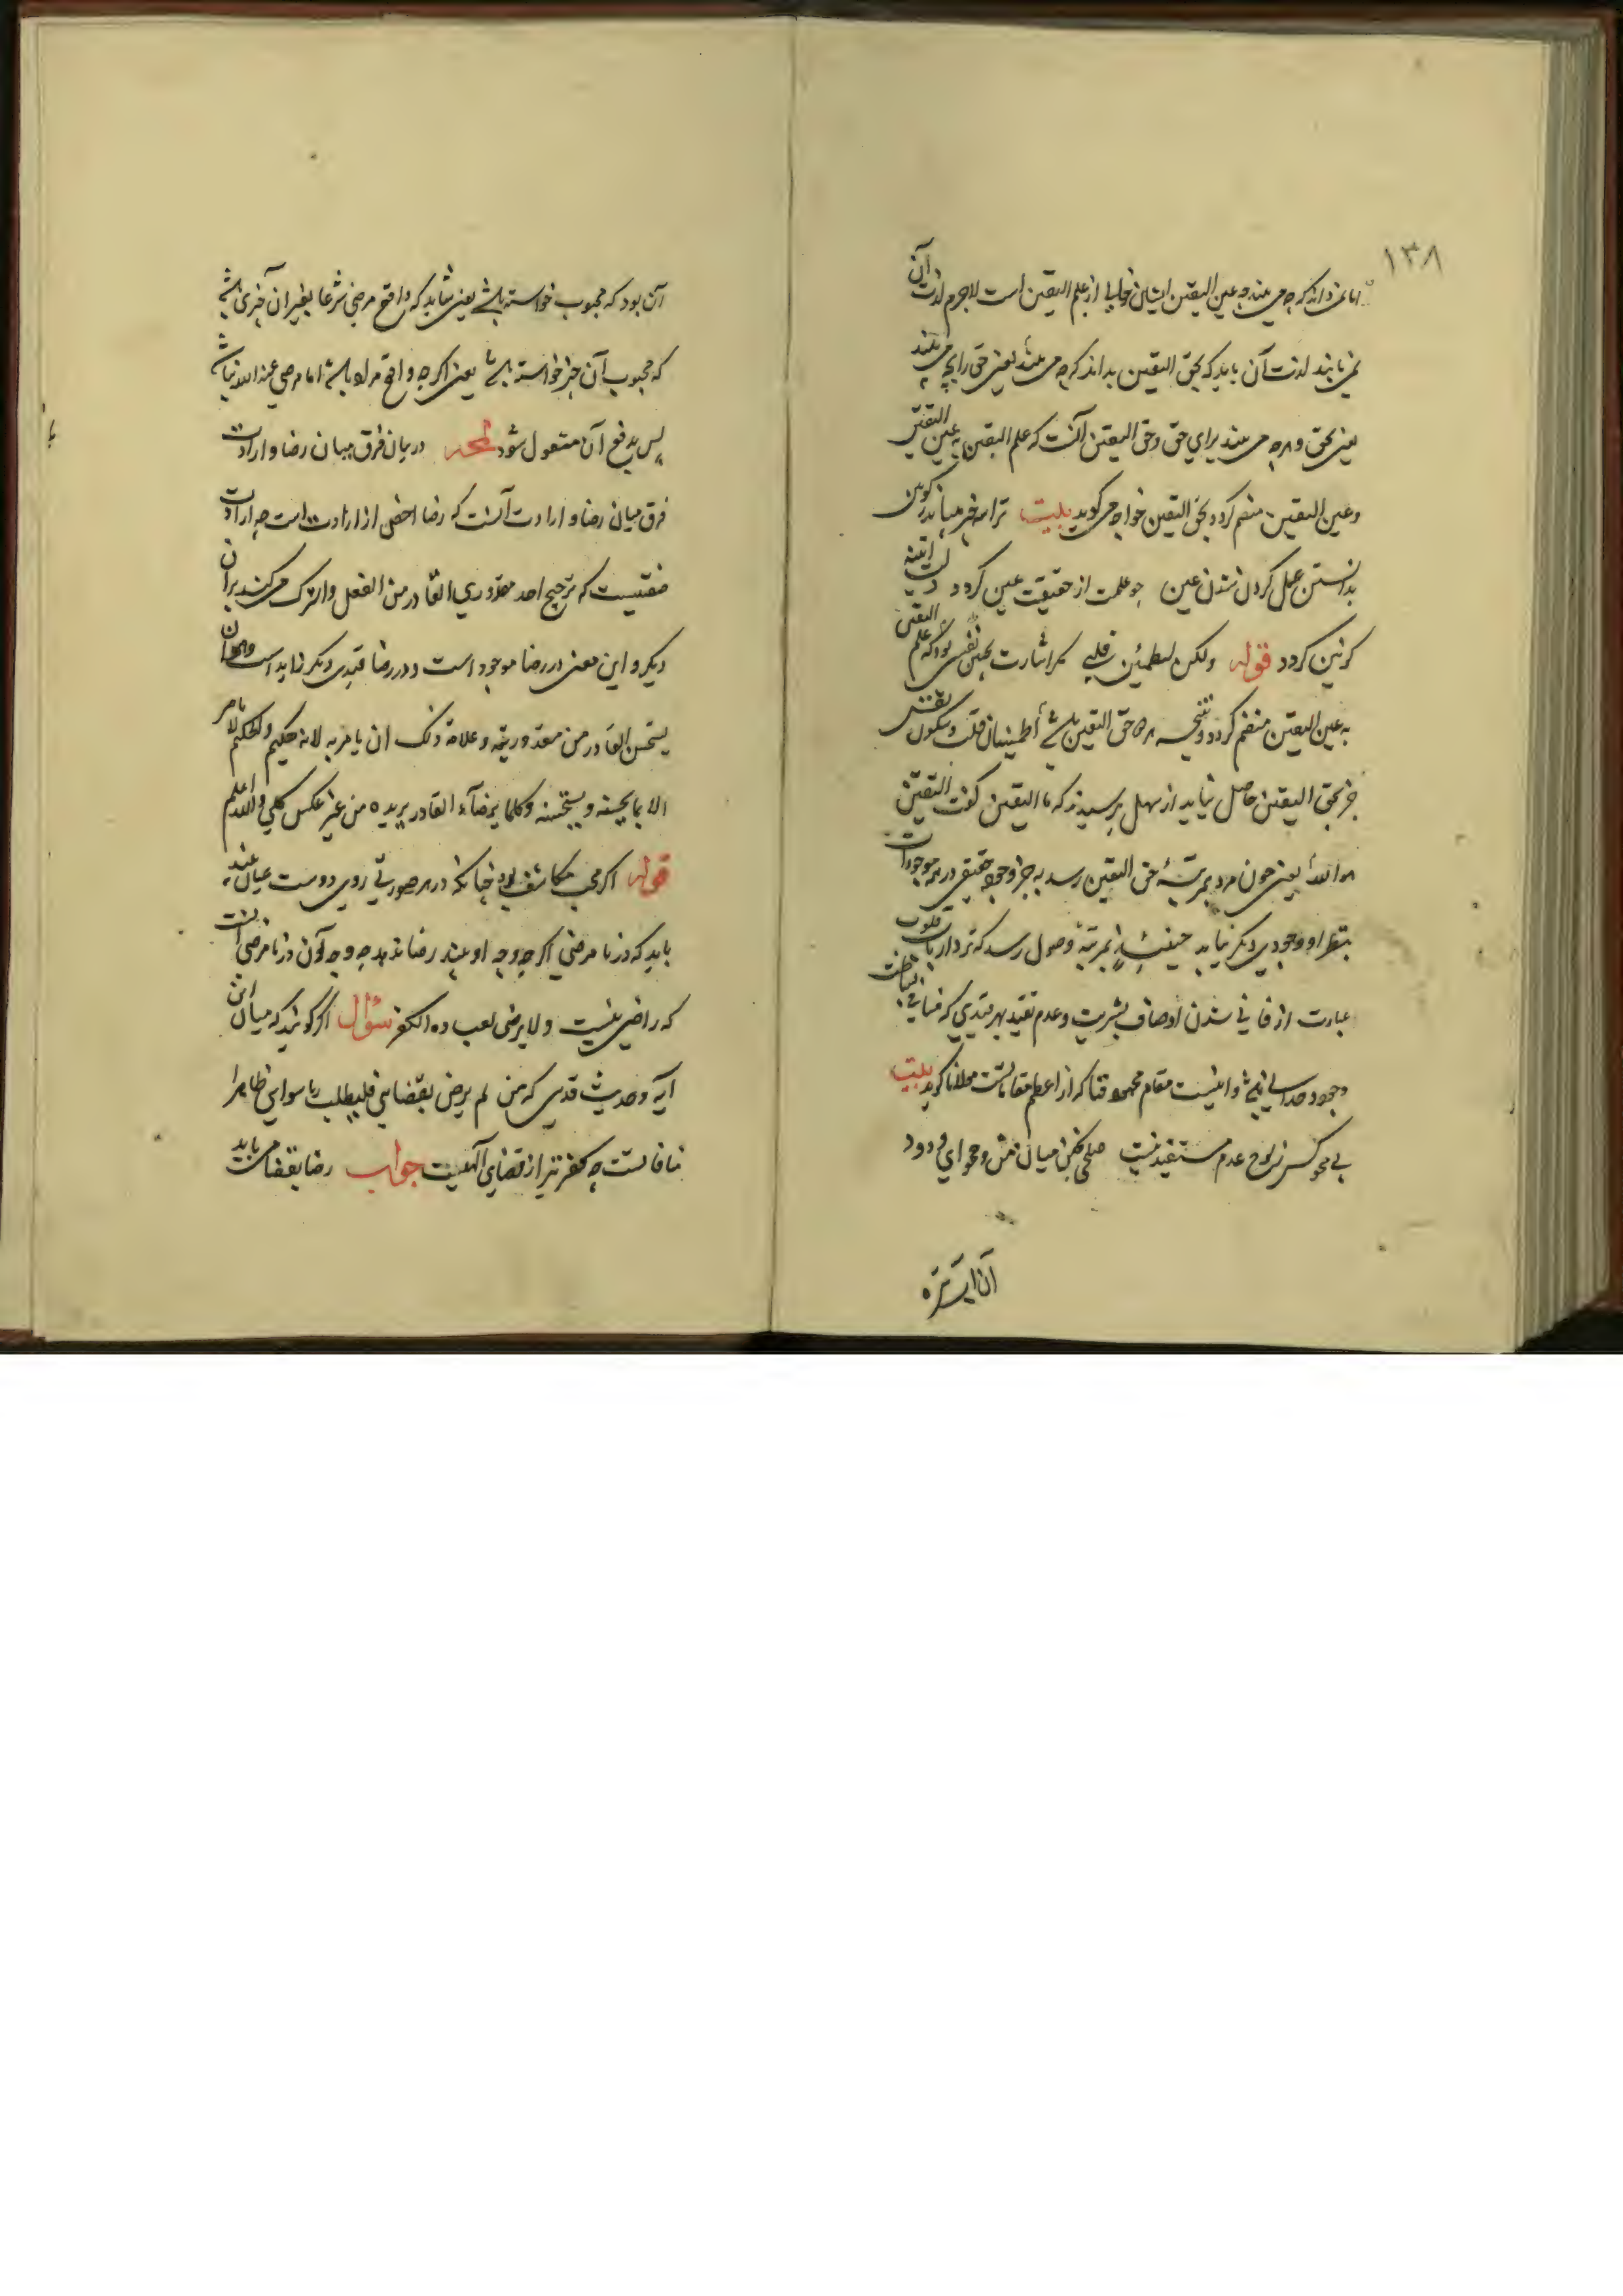 ۱۳۸
اما نمی‌داند که چه می بیند چه عین الیقین ایشان خالی از علم الیقین است لاجرم لذت آن
نمی یابند لذت آن باید که بحق الیقین بداند که چه می بیند یعنی حق را بچه می بیند
یعنی بحق و هرچه می بیند برای حق و حق الیقین آنست که علم الیقین به عین الیقین
و عین الیقین منضم کردد بحق الیقین خواجه می کوید بیت ترا سه خبر میباید ز کونین
بدانستن عمل کردن شدن عین چو علمت از حقیقت عین کردد
کونین کردد قوله ولکن لیطمئن قلبی مکر اشارت بچنین نفسی بود که علم الیقین
به عین الیقین منضم کردد و نتیجه هر دو حق الیقین باشد اطمینان قلب و سکون نفس
جز بحق الیقین حاصل نیاید از سهل پرسیدند که ما الیقین کفت الیقین
هو الله یعنی چون مرد بمرتبهٔ حق الیقین رسد به جز وجود حقیقی در همه موجودات
بنظر او وجودی دیکر نیاید حینئذ بمرتبهٔ وصول رسد که نزد ارباب قلوب
عبارت از فانی شدن اوصاف بشریت و عدم تقید بهر قیدی که منافی
وجود باشد و اینست مقام محو و فنا که از اعظم مقاماتست مولانا کوید بیت
بی محو کس ز لوح عدم مستفید نیست صلحی فکن میان من و محو ای ودود
آن بود که محبوب خواسته باشد یعنی شاید که واقع مرضی شرعا بغیر آن چیزی باشد
که محبوب آن چیز خواسته باشد یعنی اکرچه واقع مراد باشد اما مرضی عند الله نباشد
پس بدفع آن مشغول شود در بیان فرق میان رضا و ارادت
فرق میان رضا و ارادت آنست که رضا اخص از ارادت است چه ارادت
صفتیست که ترجیح احد مقدوری القادر من الفعل والترک می کند بر آن
دیکر و این معنی در رضا موجود است و در رضا قیدی دیکر زاید است وهو ان
یستحسن القادر من مقدوریه وعلامة ذلک ان یامر به لانه حکیم والحکیم لا یامر
الا بما یحسنه ویستحسنه وکلما یرضاء القادر یریده من غیر عکس کلی والله اعلم
قوله اکر محب مکاشف بود چنانکه در هر صورتی روی دوست عیان بیند
باید که در نا مرضی اکرچه وجه او بیند رضا ندهد چه وجه او آن در نا مرضی آنست
که راضی نیست ولا یرضی لعباده الکفر سؤال اکر کویند که میان این
آیه و حدیث قدسی که من لم یرض بقضایی فلیطلب ربا سوایی ظاهرا
منافاتست چه کفر نیز از قضای الهیست جواب رضا بقضا می باید